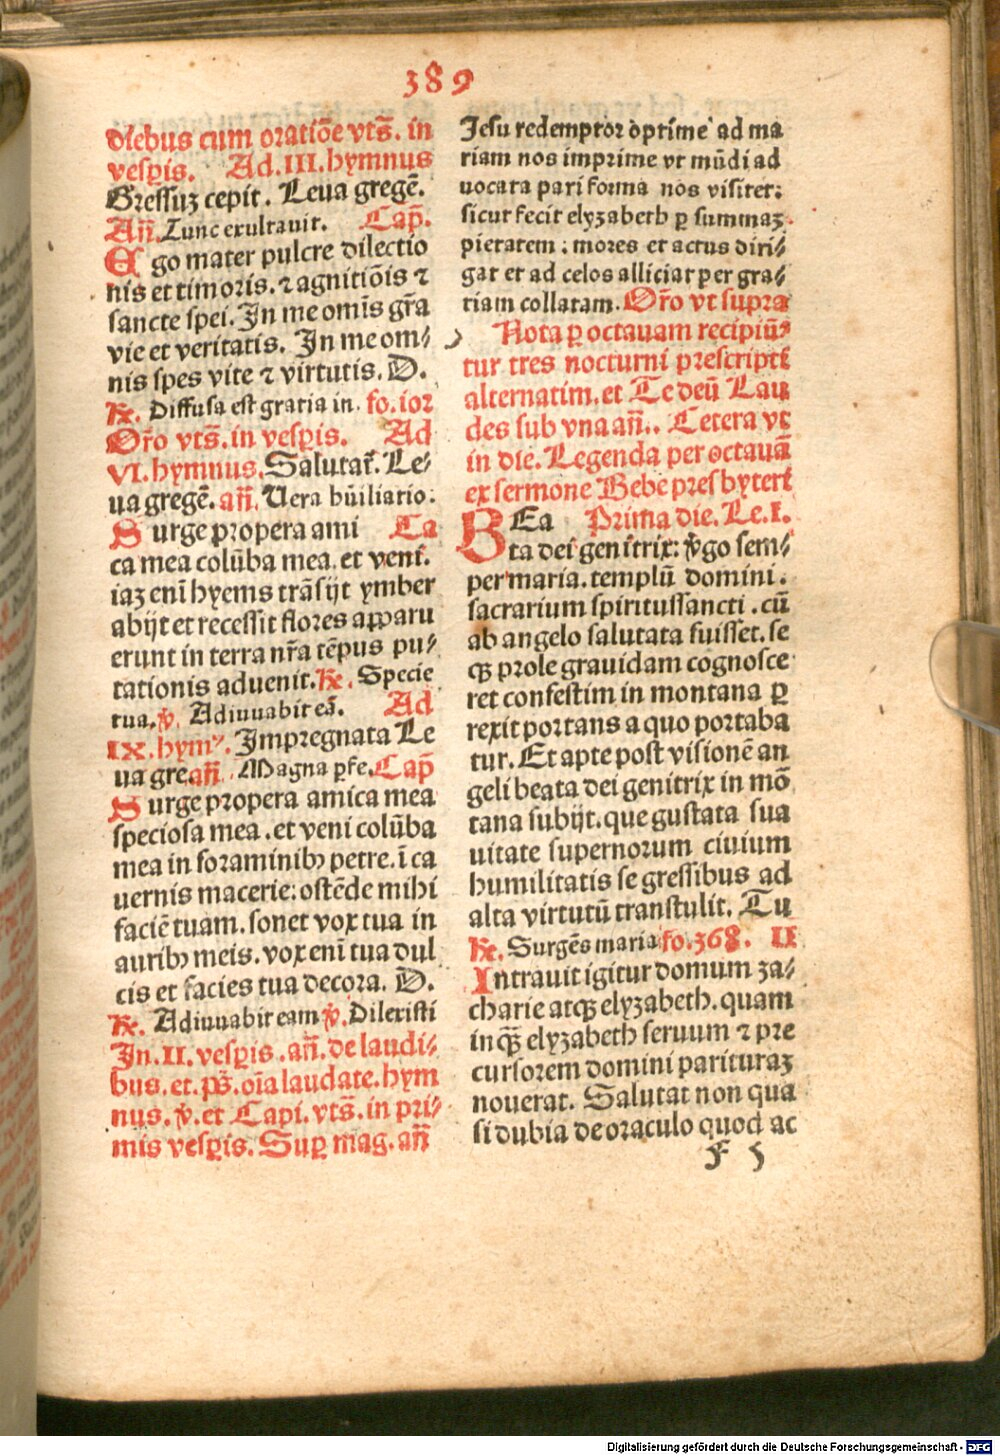 389
diebus cum oratiōe vts̄. in
vesꝑis. Ad.III.hymnus
Gressuꝫ cepit. Leua gregē.
Añ. Tunc exultauit. Cap̄.
Ego mater pulcre dilectio
nis et timoris. ⁊ agnitiōis ⁊
sancte spei. In me om̄is gr̄a
vie et veritatis. In me om⸗
nis spes vite ⁊ virtutis. D.
R̄. Diffusa est gratia in. fo. 101
Or̄o vts̄. in vesꝑis. Ad
VI. hymnus. Salutar̄. Le⸗
ua gregē. añ. Uera hūiliatio.
Surge propera ami Ca
ca mea colūba mea. et veni.
iaꝫ eni hyems trāsijt ymber
abijt et recessit flores apparu
erunt in terra nr̄a tēpus pu⸗
tationis aduenit. R̄. Specie
tua. v̄. Adiuuabit eā. Ad
IX. hymꝰ. Impregnata Le
ua gre. añ. Magna ꝑfe. Cap̄
Surge propera amica mea
speciosa mea. et veni colūba
mea in foraminibꝰ petre. ī ca
uernis macerie: ostēde mihi
faciē tuam. sonet vox tua in
auribꝰ meis. vox enī tua dul
cis et facies tua decora. D.
R̄. Adiuuabit eam v̄. Dilexisti
In. II. vesꝑis. añ. de laudi⸗
bus. et. ps̄. oīa laudate. hym
nus. v̄. et Capi. vts̄. in pri⸗
mis vesꝑis. Suꝑ mag. añ
Jesu redemptor optime ad ma
riam nos imprime vt mūdi ad
uocata pari forma nos visitet:
sicut fecit elyzabeth ꝑ summaꝫ
pietatem: mores et actus diri⸗
gat et ad celos alliciat per gra⸗
tiam collatam. Or̄o vt supra
Nota ꝑ octauam recipiūꝰ
tur tres nocturni prescripti
alternatim. et Te deū Lau
des sub vna añ.. Cetera vt
in die. Legenda per octauā
ex sermone Bebe presbyteri
BEa Prima die. Le. I.
ta dei genitrix: v̄go sem⸗
per maria. templū domini.
sacrarium spiritussancti. cū
ab angelo salutata fuisset. se
qꝫ prole grauidam cognosce
ret confestim in montana ꝑ
rexit portans a quo portaba
tur. Et apte post visionē an
geli beata dei genitrix in mō
tana subijt. que gustata sua
uitate supernorum ciuium
humilitatis se gressibus ad
alta virtutū transtulit. Tu
R̄. Surgēs maria fo. 368. II
Intrauit igitur domum za⸗
charie atqꝫ elyzabeth. quam
inqꝫ elyzabeth seruum ⁊ pre
cursorem domini parituraꝫ
nouerat. Salutat non qua
si dubia de oraculo quod ac
F 5
Digitalisierung gefördert durch die Deutsche Forschungsgemeinschaft - DFG